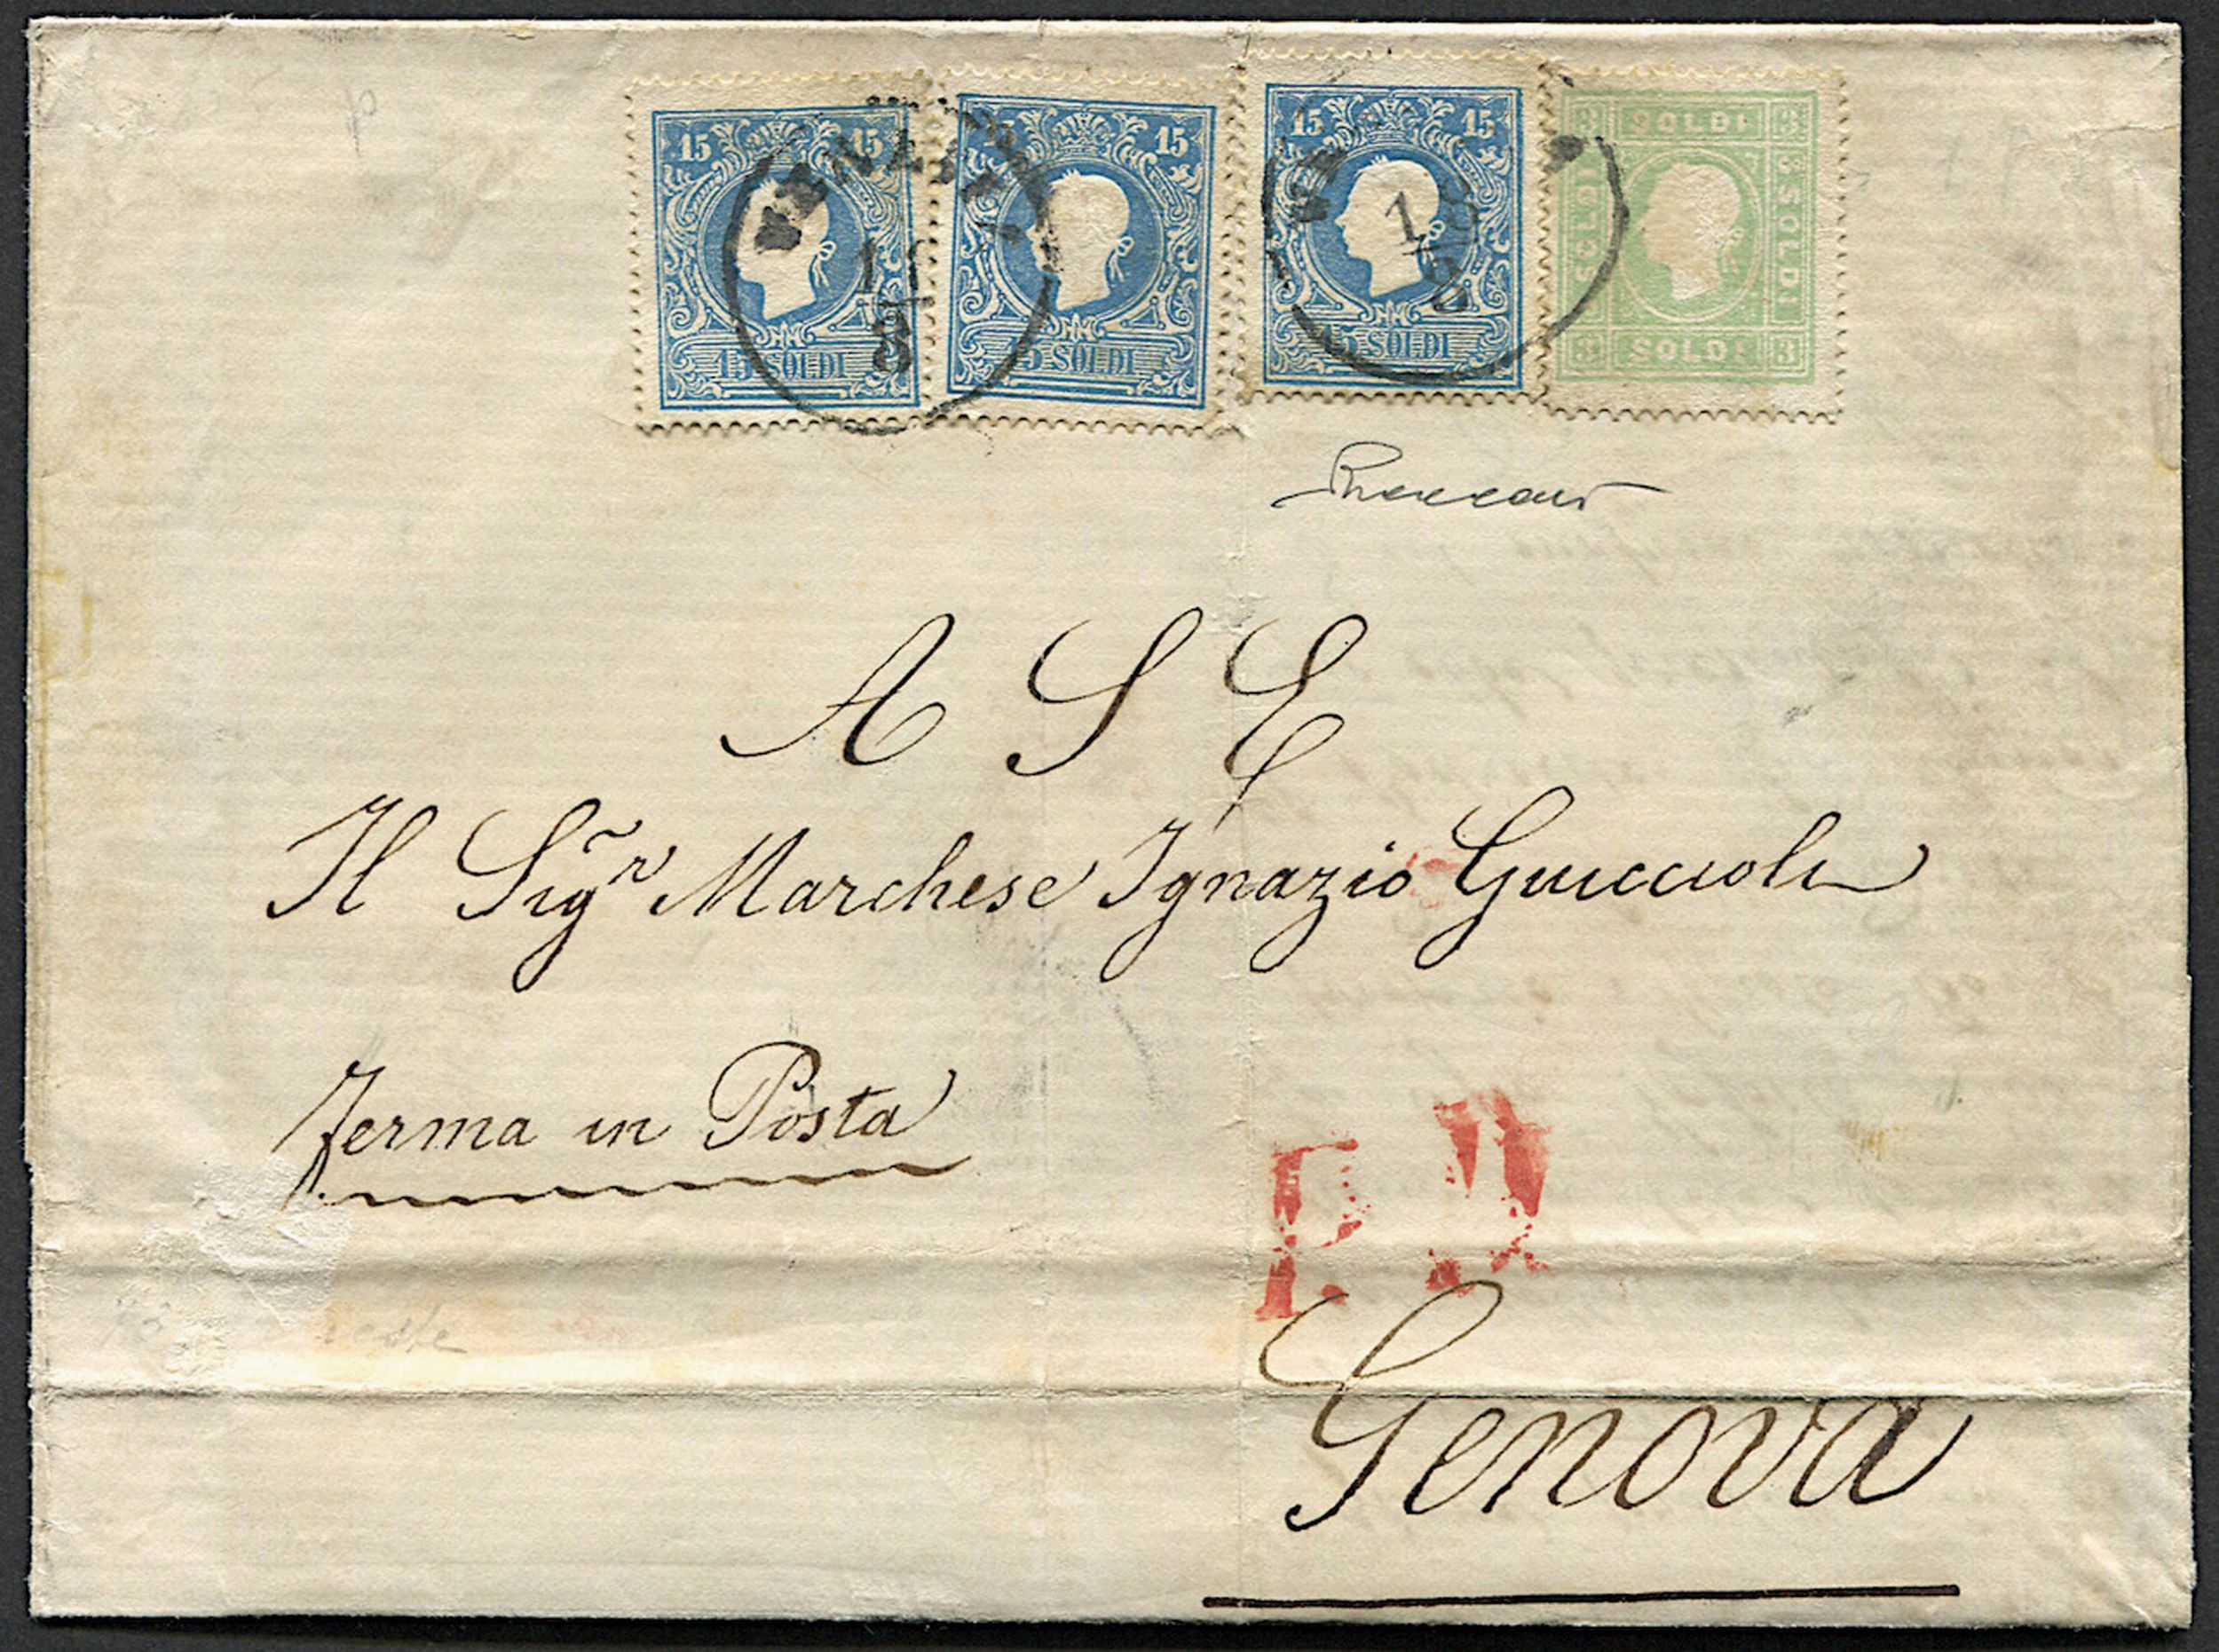 15 15
15 SOLDI
15
15 SOLDI
15 15
15 SOLDI
3 SOLDI 3
SOLDI
SOLDI
3 SOLDI 3
VENEZIA
8
18
8
A S E
Il Sigr Marchese Ignazio Guiccioli
Ferma in Posta
P. D.
Genova